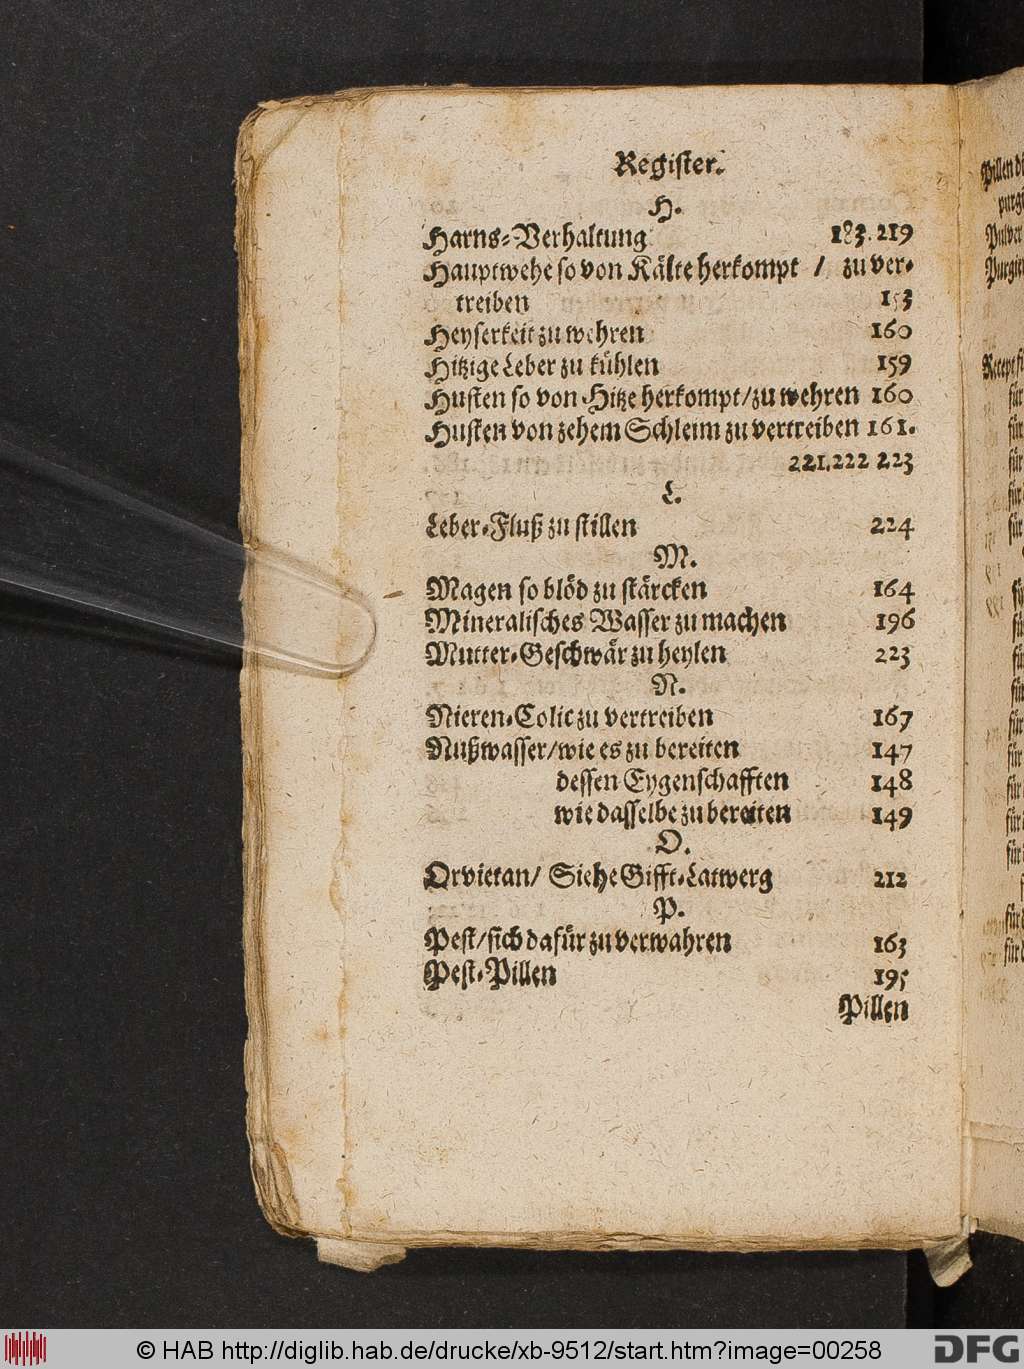 Register.
H.
Harns-Verhaltung 183. 219
Hauptwehe so von Kälte herkompt / zu ver-
treiben 153
Heyserkeit zu wehren 160
Hitzige Leber zu kühlen 159
Husten so von Hitze herkompt/zu wehren 160
Husten von zehem Schleim zu vertreiben 161.
221.222 223
L.
Leber-Fluß zu stillen 224
M.
Magen so blöd zu stärcken 164
Mineralisches Wasser zu machen 196
Mutter-Geschwär zu heylen 223
N.
Nieren-Colic zu vertreiben 167
Nußwasser/wie es zu bereiten 147
dessen Eygenschafften 148
wie dasselbe zu bereiten 149
O.
Orvietan/ Siehe Gifft-Latwerg 212
P.
Pest/sich dafür zu verwahren 163
Pest-Pillen 195
Pillen
Pillen
Pulver
Recept
für
für
für
für
für
© HAB http://diglib.hab.de/drucke/xb-9512/start.htm?image=00258
DFG